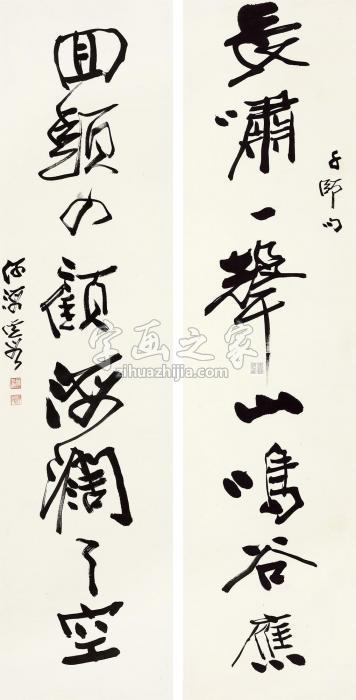 長嘯一聲山鳴谷應
回頭四顧海濶天空
字画之家
zihuazhijia.com